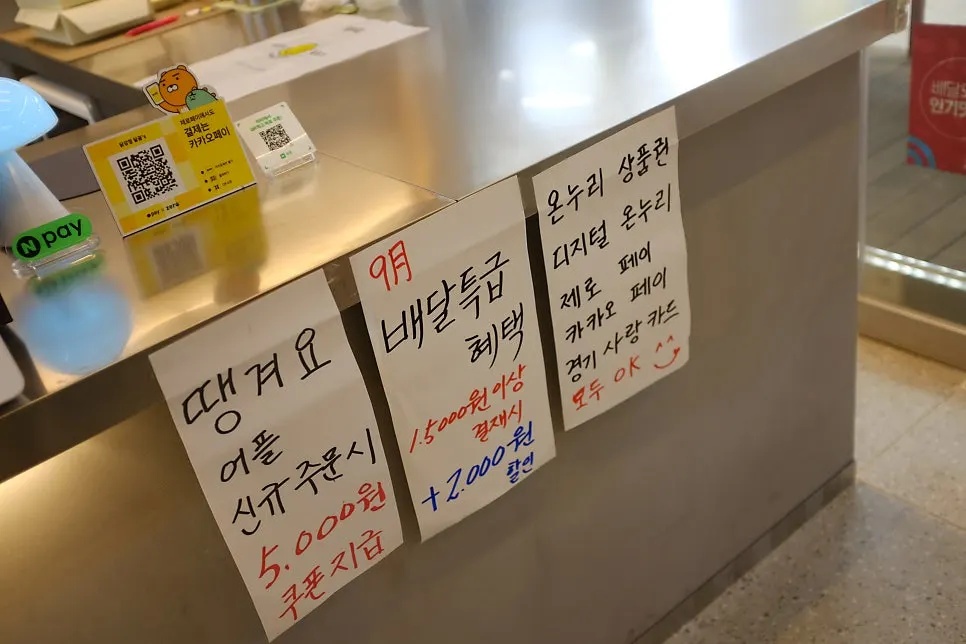 제로페이에서도
결제는
카카오페이
N pay
땡겨요
어플
신규 주문시
5.000원
쿠폰지급
9月
배달특급
혜택
1.5000원 이상
결재시
+2.000원
할인
온누리 상품권
디지털 온누리
제로 페이
카카오 페이
경기 사랑 카드
모두 OK
배달의
인기